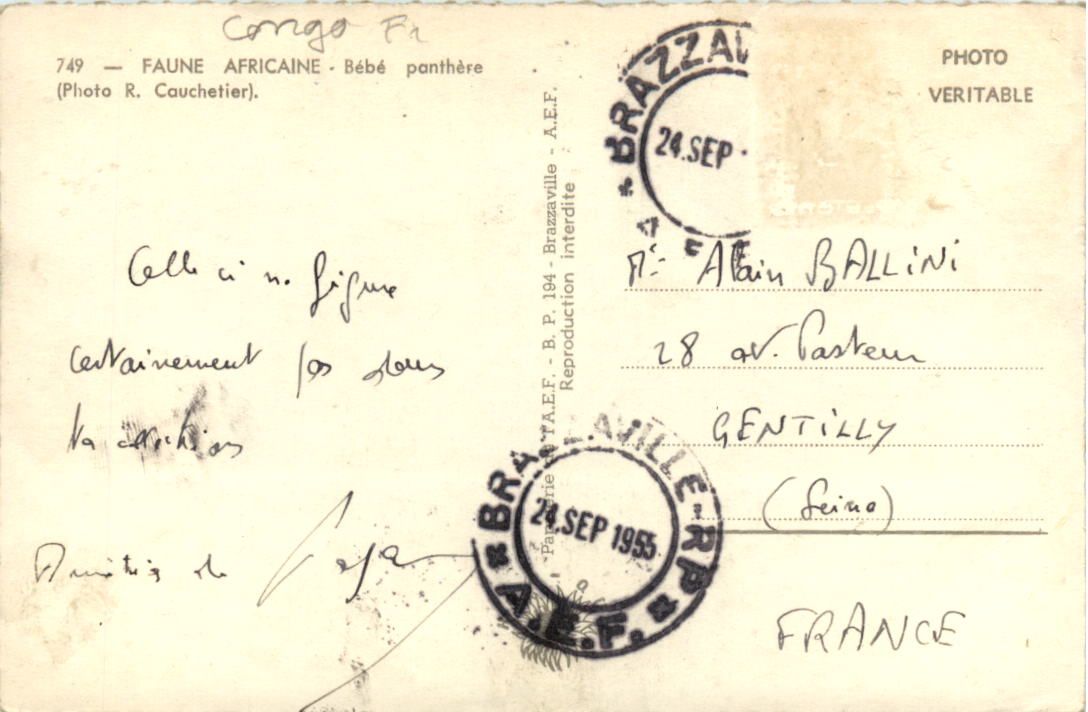 Congo Fr
749 — FAUNE AFRICAINE - Bébé panthère
(Photo R. Cauchetier).
PHOTO
VERITABLE
BRAZZAV
24.SEP
Celle ci ne figure
certainement pas dans
ta collection
Amitiés de
Papeterie de l'A.E.F. - B. P. 194 - Brazzaville - A.E.F.
Reproduction interdite
BRAZZAVILLE-RP
24.SEP 1955
A.E.F.
Mr Alain BALLiNi
28 av. Pasteur
GENTiLLY
(Seine)
FRANCE